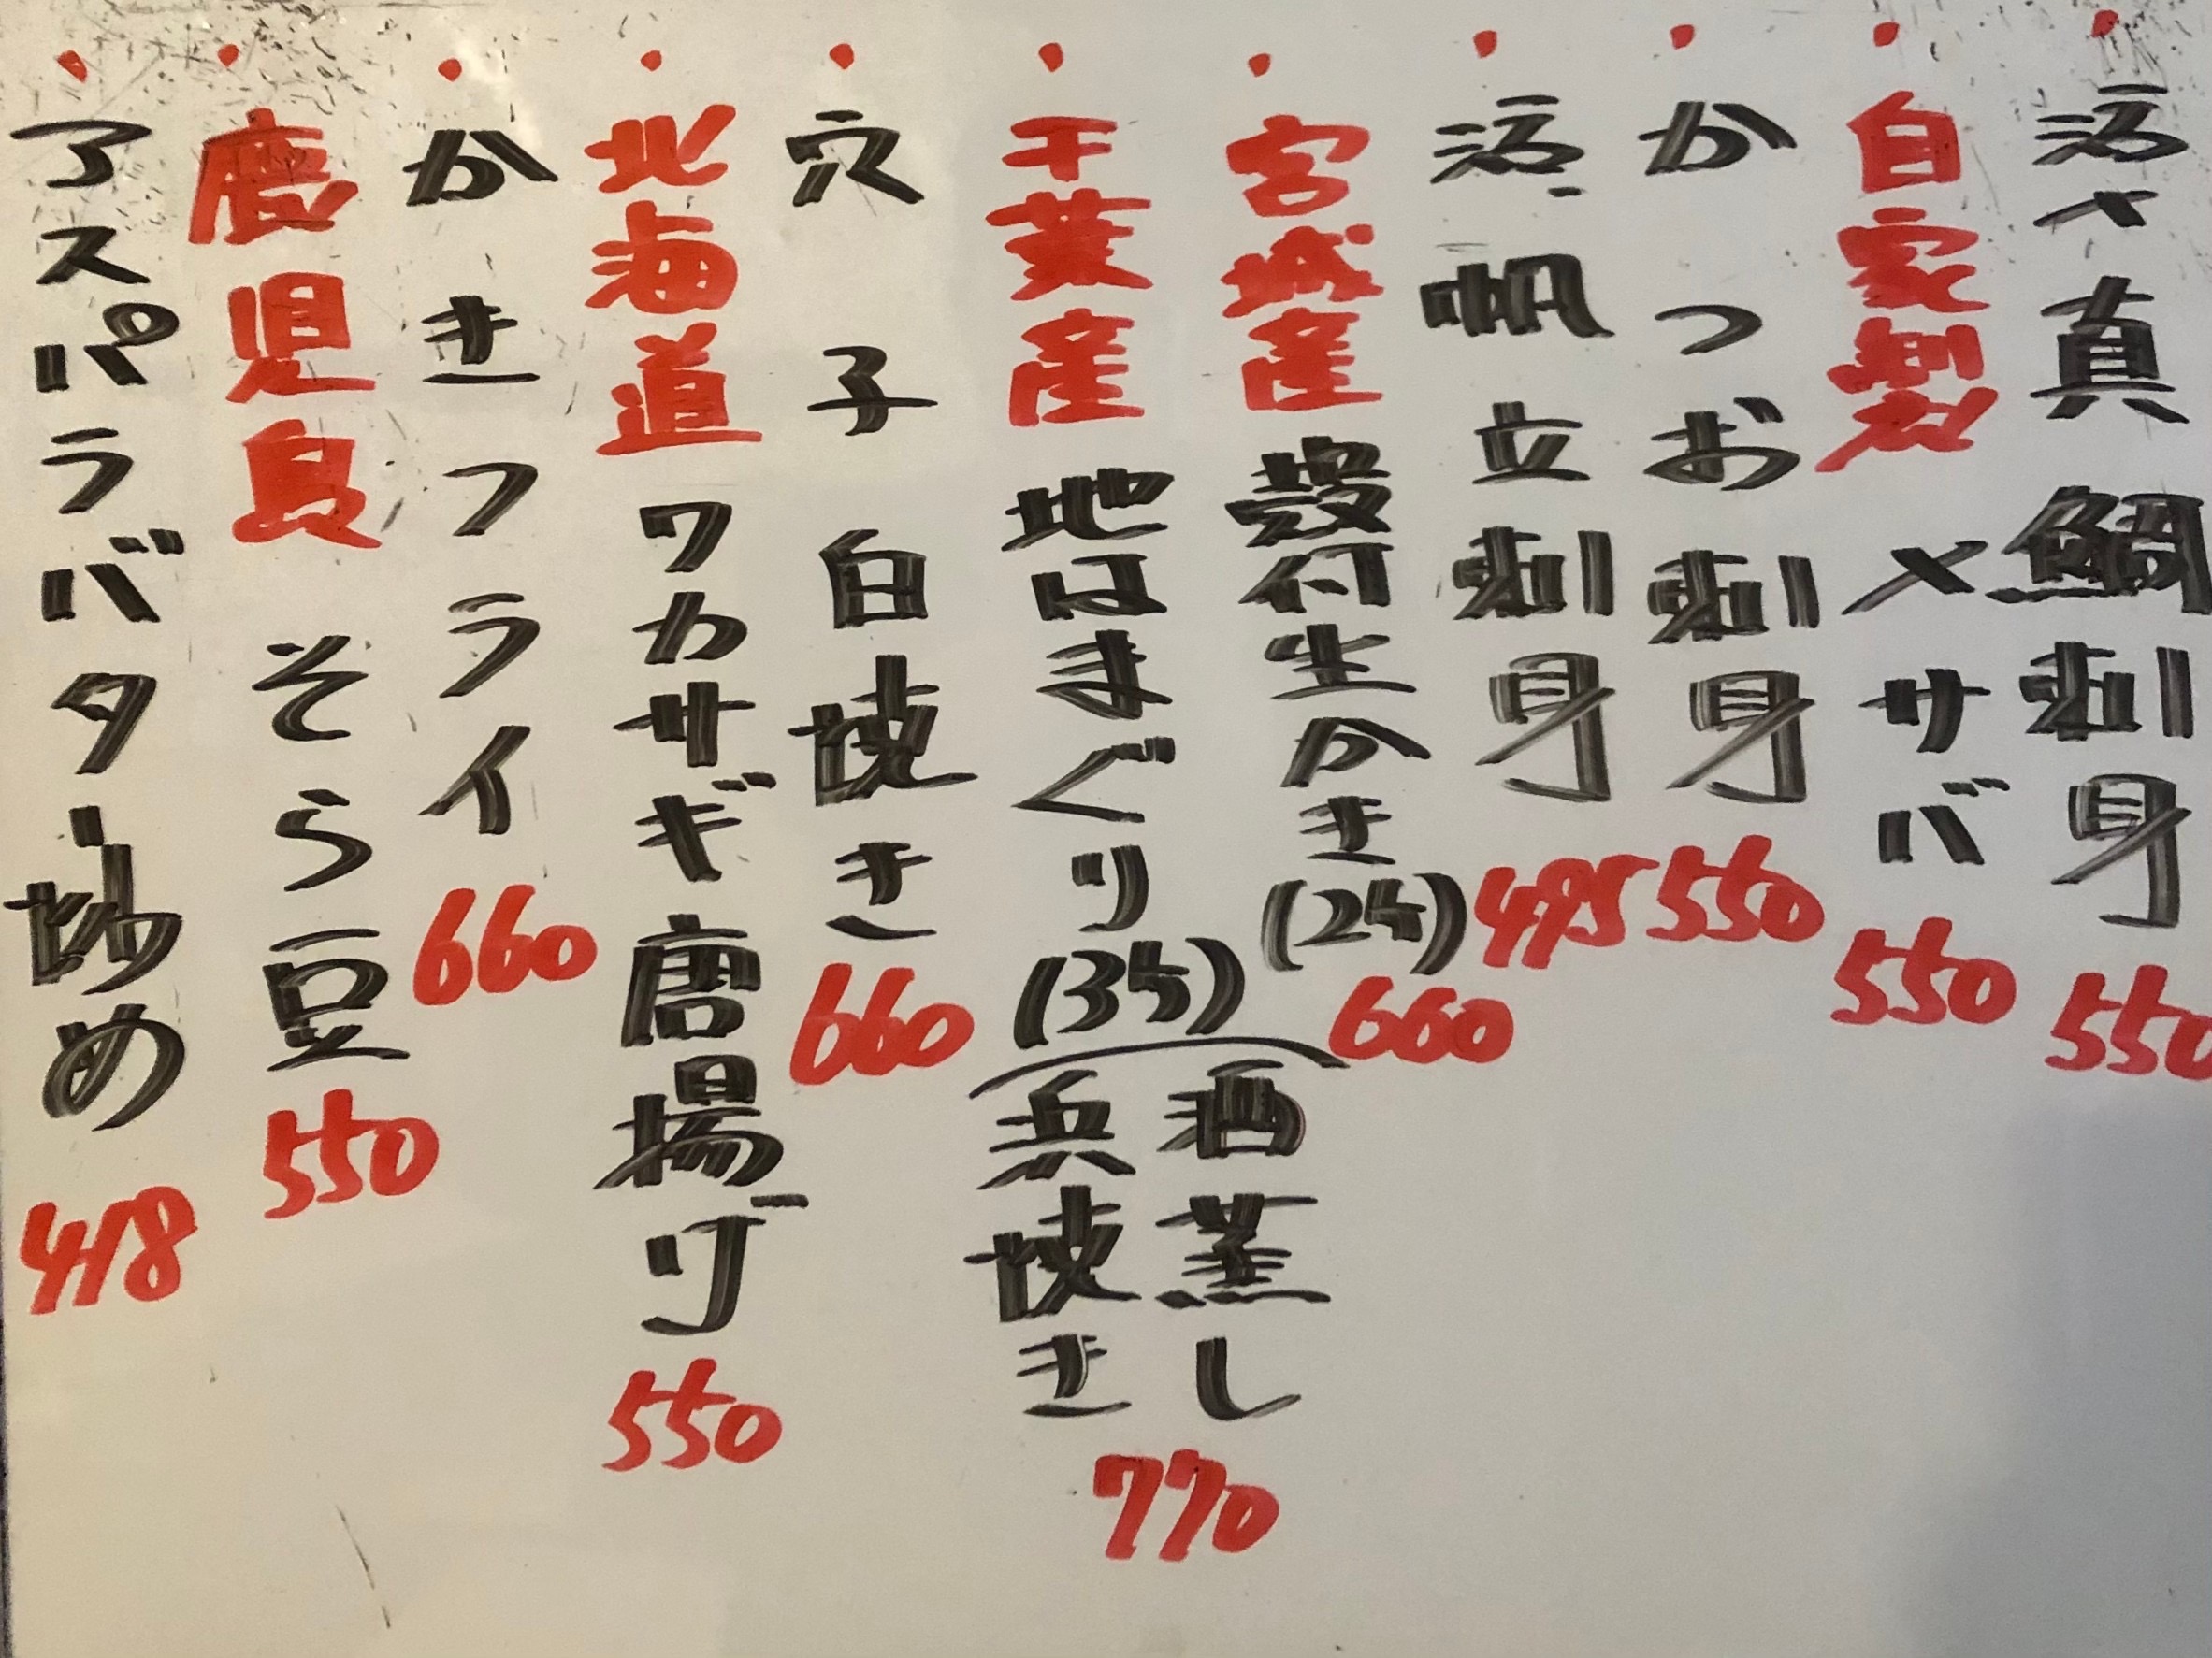 ・活〆真鯛刺身 550
・自家製〆サバ 550
・かつお刺身 550
・活帆立刺身 495
・宮城産殻付生かき(2ケ) 660
・千葉産地はまぐり(3ケ)
酒蒸し
浜焼き
770
・穴子白焼き 660
・北海道ワカサギ唐揚げ 550
・かきフライ 660
・鹿児島そら豆 550
・アスパラバター炒め 418